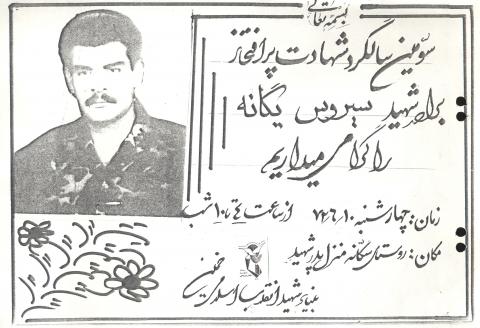 بسمه تعالی
سومین سالگرد شهادت پرافتخار
برادر شهید سیروس یگانه
را گرامی میداریم
زمان: چهارشنبه ۷۲،۶،۱۰ از ساعت ۴ تا ۱۰ شب
مکان: روستای منزل پدر شهید
بنیاد شهید انقلاب اسلامی خمین